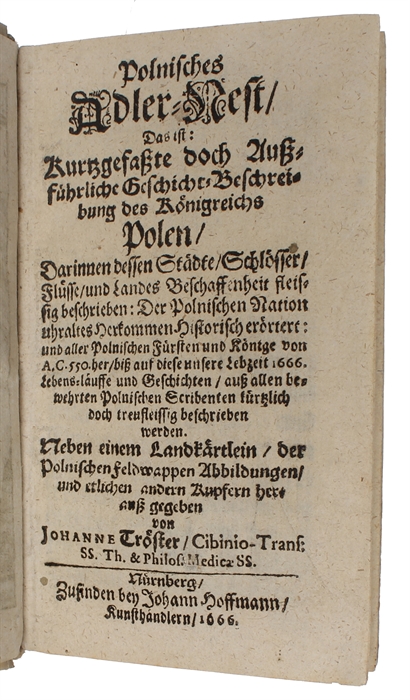 Polnisches
Adler-Nest/
Das ist:
Kurtzgefaßte doch Auß-
führliche Geschicht-Beschrei-
bung des Königreichs
Polen/
Darinnen dessen Städte/Schlösser/
Flüsse/und Landes Beschaffenheit fleis-
sig beschrieben: Der Polnischen Nation
uhraltes Herkommen Historisch erörtert:
und aller Polnischen Fürsten und Könige von
A.C.550.her/biß auf diese unsere Lebzeit 1666.
Lebens-läuffe und Geschichten/auß allen be-
wehrten Polnischen Scribenten kürtzlich
doch treufleissig beschrieben
werden.
Neben einem Landkärtlein/der
Polnischen Feldwappen Abbildungen/
und etlichen andern Kupfern her-
auß gegeben
von
JOHANNE Tröster/Cibinio-Trans:
SS. Th. & Philos: Medicæ SS.
Nürnberg/
Zufinden bey Johann Hoffmann/
Kunsthändlern/1666.